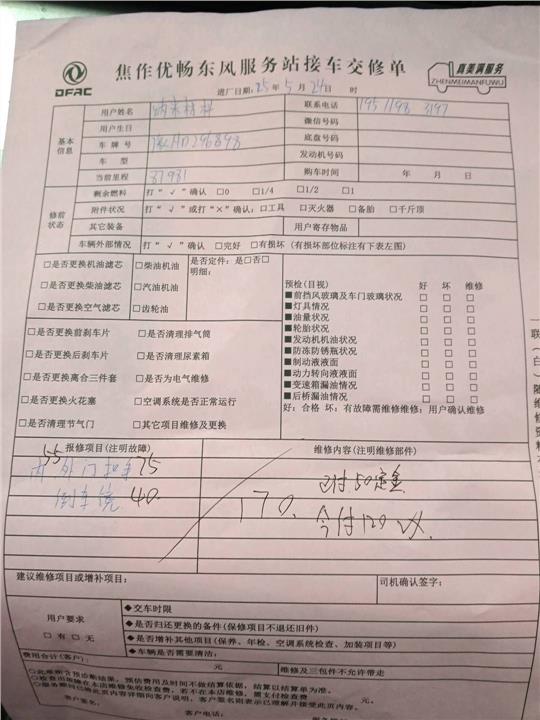 DFAC
焦作优畅东风服务站接车交修单
真美满服务
ZHENMEIMANFUWU
进厂日期:25年5月24日 时
基本信息
用户姓名 联系电话
用户生日 微信号码
车牌号 底盘号码
车型 发动机号码
当前里程 37931 购车时间 年 月 日
修前状态
剩余燃料 打“√”确认 □0 □1/4 □1/2 □1
附件状况 打“√”或打“×”确认:□工具 □灭火器 □备胎 □千斤顶
其它装备 用户寄存物品
车辆外部情况 打“√”确认 □完好 □有损坏(有损坏部位标注有下表左图)
□是否更换机油滤芯 □柴油机油 是否定件:是□否□
明细:
□是否更换柴油滤芯 □汽油机油
□是否更换空气滤芯 □齿轮油
□是否更换前刹车片 □是否清理排气筒
□是否更换后刹车片 □是否清理尿素箱
□是否更换离合三件套 □是否为电气维修
□是否更换火花塞 □空调系统是否正常运行
□是否清理节气门 □其它项目维修及更换
预检(目视) 好 坏 维修
■前挡风玻璃及车门玻璃状况 □ □ □
■灯具情况 □ □ □
■油量状况 □ □ □
■轮胎状况 □ □ □
■发动机机油状况 □ □ □
■防冻防锈瓶状况 □ □ □
■制动液液面 □ □ □
■动力转向液液面 □ □ □
■变速箱漏油情况 □ □ □
■后桥漏油情况 □ □ □
好:合格 坏:有故障需维修维修:用户确认维修
报修项目(注明故障) 维修内容(注明维修部件)
55
内 外门扣手 75 已付50定金
倒车镜 40. 170. 今付120
建议维修项目或增补项目: 司机确认签字:
用户要求
□有 □无
◆交车时限
◆是否归还更换的备件(保修项目不退还旧件)
◆是否增补其他项目(保养、年检、空调系统检查、加装项目等)
◆车辆是否需要清洁:
费用合计(客户): 元 维修及三包件不允许带走
客户签名: 客户电话: